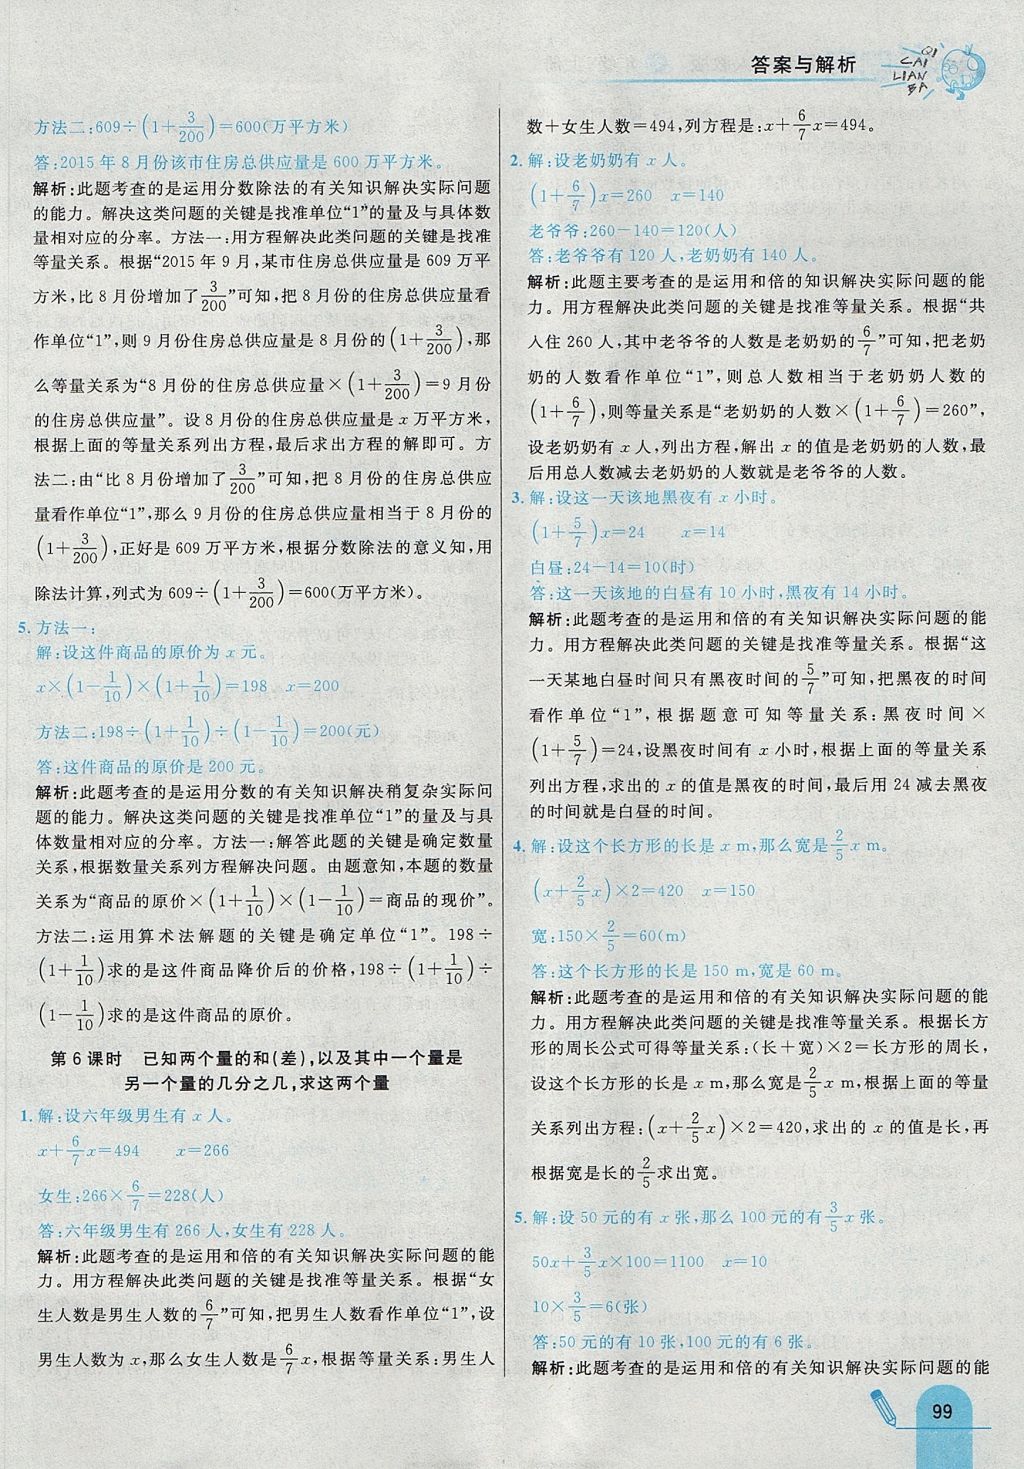 答案与解析
QI
CAI
LIAN
BA
方法二:609÷(1+3/200)=600(万平方米)
答:2015年8月份该市住房总供应量是600万平方米。
解析:此题考查的是运用分数除法的有关知识解决实际问题
的能力。解决这类问题的关键是找准单位“1”的量及与具体数
量相对应的分率。方法一:用方程解决此类问题的关键是找准
等量关系。根据“2015年9月,某市住房总供应量是609万平
方米,比8月份增加了3/200”可知,把8月份的住房总供应量看
作单位“1”,则9月份住房总供应量是8月份的(1+3/200),那
么等量关系为“8月份的住房总供应量×(1+3/200)=9月份
的住房总供应量”。设8月份的住房总供应量是x万平方米,
根据上面的等量关系列出方程,最后求出方程的解即可。方
法二:由“比8月份增加了3/200”可知,把8月份的住房总供应
量看作单位“1”,那么9月份的住房总供应量相当于8月份的
(1+3/200),正好是609万平方米,根据分数除法的意义知,用
除法计算,列式为609÷(1+3/200)=600(万平方米)
5.方法一:
解:设这件商品的原价为x元。
x×(1-1/10)×(1+1/10)=198 x=200
方法二:198÷(1+1/10)÷(1-1/10)=200(元)
答:这件商品的原价是200元。
解析:此题考查的是运用分数的有关知识解决稍复杂实际问
题的能力。解决这类问题的关键是找准单位“1”的量及与具
体数量相对应的分率。方法一:解答此题的关键是确定数量
关系,根据数量关系列方程解决问题。由题意知,本题的数量
关系为“商品的原价×(1+1/10)×(1-1/10)=商品的现价”。
方法二:运用算术法解题的关键是确定单位“1”。198÷
(1+1/10)求的是这件商品降价后的价格,198÷(1+1/10)÷
(1-1/10)求的是这件商品的原价。
第6课时 已知两个量的和(差),以及其中一个量是
另一个量的几分之几,求这两个量
1.解:设六年级男生有x人。
x+6/7x=494 x=266
女生:266×6/7=228(人)
答:六年级男生有266人,女生有228人。
解析:此题考查的是运用和倍的有关知识解决实际问题的能
力。用方程解决此类问题的关键是找准等量关系。根据“女
生人数是男生人数的6/7”可知,把男生人数看作单位“1”,设
男生人数为x,那么女生人数是6/7x,根据等量关系:男生人
数+女生人数=494,列方程是:x+6/7x=494。
2.解:设老奶奶有x人。
(1+6/7)x=260 x=140
老爷爷:260-140=120(人)
答:老爷爷有120人,老奶奶有140人。
解析:此题主要考查的是运用和倍的知识解决实际问题的能
力。用方程解决此类问题的关键是找准等量关系。根据“共
入住260人,其中老爷爷的人数是老奶奶的6/7”可知,把老奶
奶的人数看作单位“1”,则总人数相当于老奶奶人数的
(1+6/7),则等量关系是“老奶奶的人数×(1+6/7)=260”,
设老奶奶有x人,列出方程,解出x的值是老奶奶的人数,最
后用总人数减去老奶奶的人数就是老爷爷的人数。
3.解:设这一天该地黑夜有x小时。
(1+5/7)x=24 x=14
白昼:24-14=10(时)
答:这一天该地的白昼有10小时,黑夜有14小时。
解析:此题考查的是运用和倍的有关知识解决实际问题的能
力。用方程解决此类问题的关键是找准等量关系。根据“这
一天某地白昼时间只有黑夜时间的5/7”可知,把黑夜的时间
看作单位“1”,根据题意可知等量关系:黑夜时间×
(1+5/7)=24,设黑夜时间有x小时,根据上面的等量关系
列出方程,求出的x的值是黑夜的时间,最后用24减去黑夜
的时间就是白昼的时间。
4.解:设这个长方形的长是x m,那么宽是2/5x m。
(x+2/5x)×2=420 x=150
宽:150×2/5=60(m)
答:这个长方形的长是150 m,宽是60 m。
解析:此题考查的是运用和倍的有关知识解决实际问题的能
力。用方程解决此类问题的关键是找准等量关系。根据长方
形的周长公式可得等量关系:(长+宽)×2=长方形的周长,
设这个长方形的长是x m,那么宽是2/5x m,根据上面的等量
关系列出方程:(x+2/5x)×2=420,求出的x的值是长,再
根据宽是长的2/5求出宽。
5.解:设50元的有x张,那么100元的有3/5x张。
50x+3/5x×100=1100 x=10
10×3/5=6(张)
答:50元的有10张,100元的有6张。
解析:此题考查的是运用和倍的有关知识解决实际问题的能
99